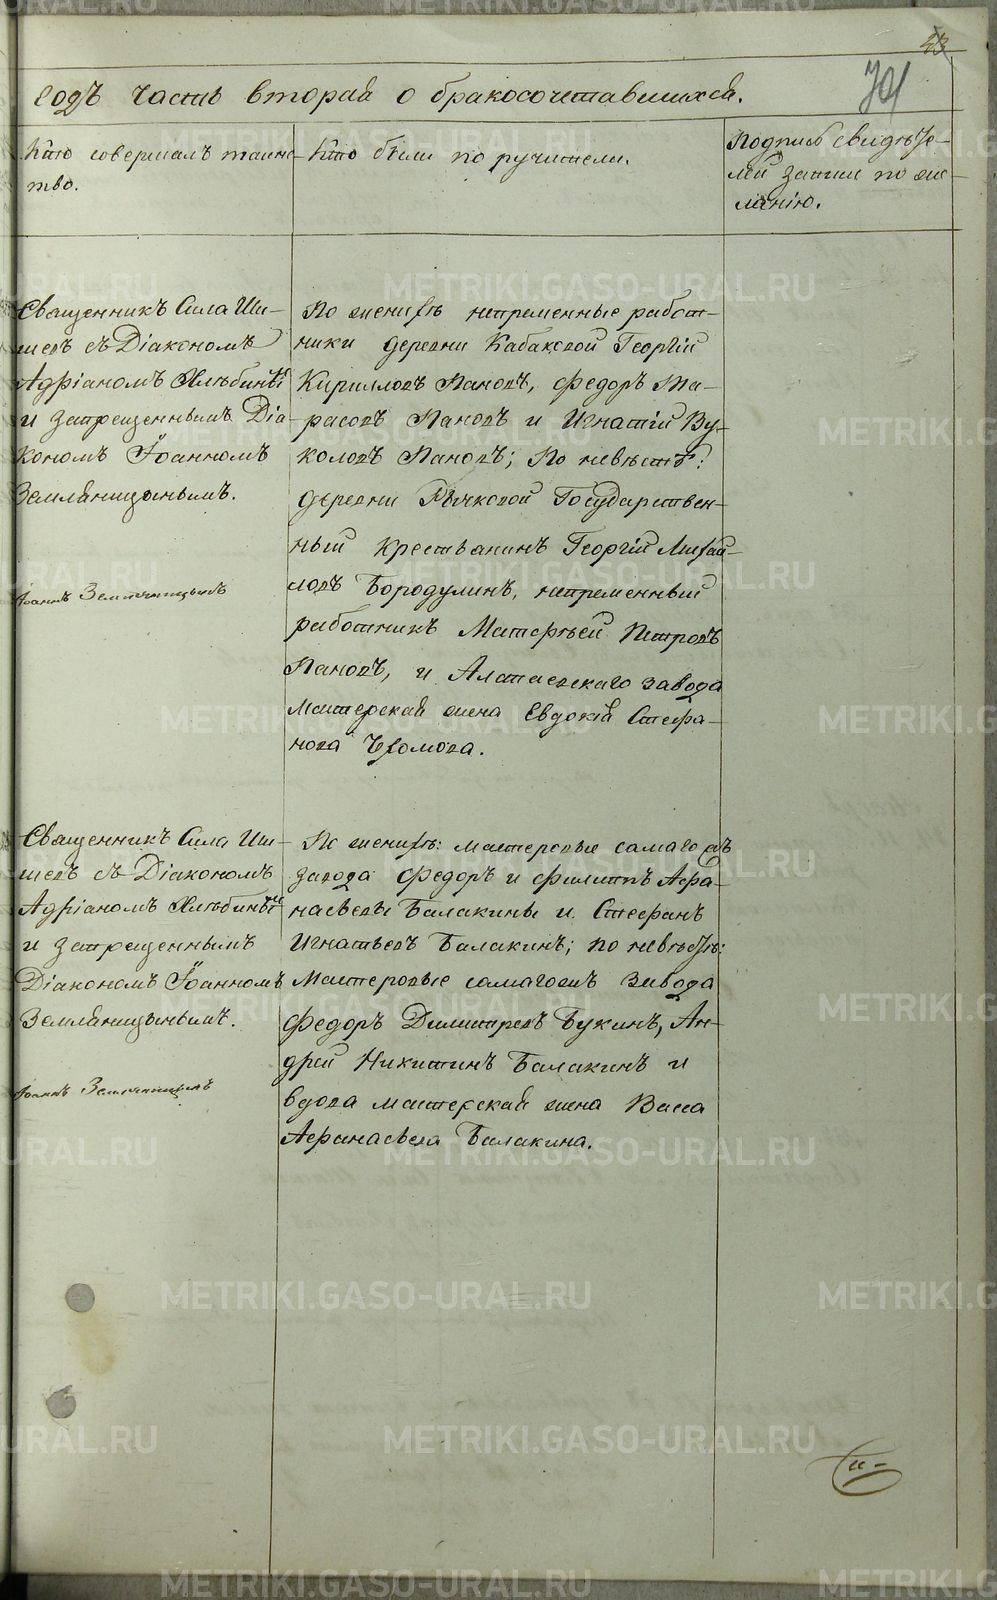 43
701
годъ часть вторая о бракосочетавшихся.
Кто совершалъ таинс-
тво.
Кто были по ручители.
Подпись свидѣте-
лей записи по же-
ланію.
Священникъ Сила Ши-
шевъ съ Діакономъ
Адріаномъ
и запрещеннымъ Діа-
кономъ Іоанномъ
Земляницынымъ.
Іоаннъ Земляницынъ
По женихѣ непременные работ-
ники деревни Кабаковой Георгій
Кириловъ Пановъ, Федоръ Та-
расовъ Пановъ и Игнатій Ву-
коловъ Пановъ; По невѣстѣ:
деревни Рычковой Государствен-
ный крестьянинъ Георгій Михай-
ловъ Бородулинъ, непременный
работникъ Матфѣй Петровъ
Пановъ, и Алапаевскаго завода
мастерская жена Евдокія Стефа-
нова Хромова.
Священникъ Сила Ши-
шевъ съ Діакономъ
Адріаномъ
и запрещеннымъ
Діакономъ Іоанномъ
Земляницынымъ.
Іоаннъ Земляницынъ
По женихѣ: мастеровые самагоевъ
завода Федоръ и Филиппъ Афа-
насьевы Балакины и Стефанъ
Игнатьевъ Балакинъ; по невѣстѣ:
Мастеровые самагоевъ завода
Федоръ Димитревъ Букинъ, Ан-
дрей Никитинъ Балакинъ и
вдова мастерская жена Васса
Афанасьева Балакина.
METRIKI.GASO-URAL.RU